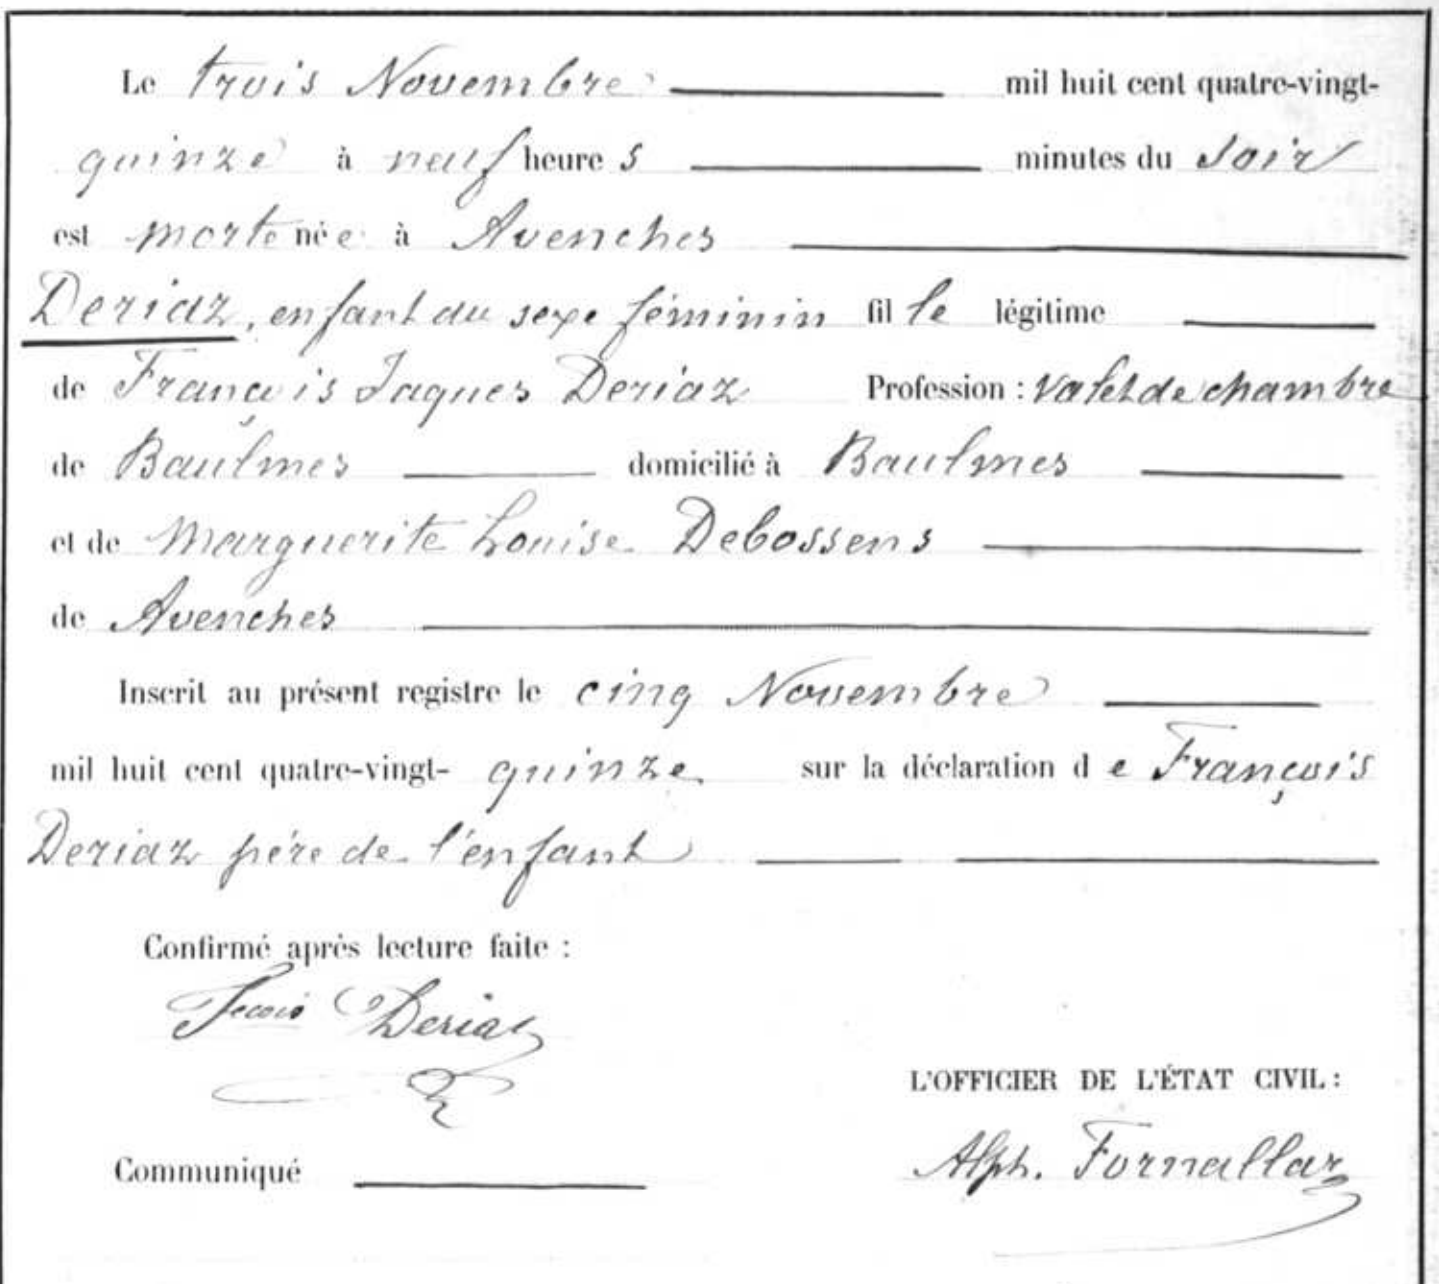 Le trois Novembre mil huit cent quatre-vingt-
quinze à neuf heures minutes du soir
est morte née à Avenches
Deriaz, enfant du sexe féminin fille légitime
de François Jaques Deriaz Profession : Valet de chambre
de Baulmes domicilié à Baulmes
et de Marguerite Louise Debossens
de Avenches
Inscrit au présent registre le cinq Novembre
mil huit cent quatre-vingt- quinze sur la déclaration de François
Deriaz père de l'enfant
Confirmé après lecture faite :
Deriaz
L'OFFICIER DE L'ÉTAT CIVIL :
Alph. Fornallaz
Communiqué